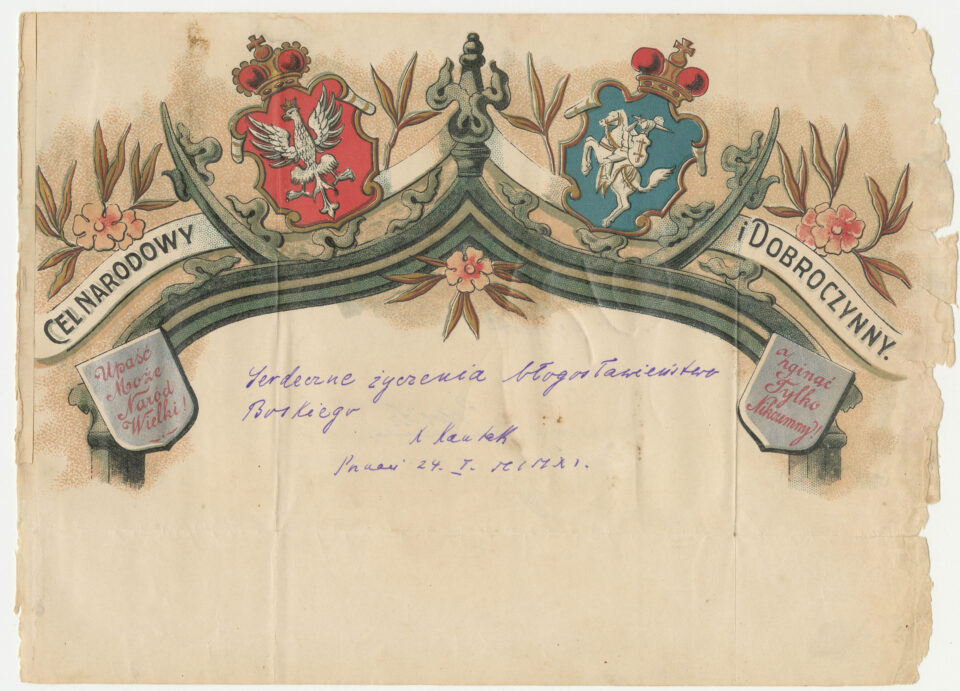 CEL NARODOWY
i DOBROCZYNNY.
Upaść
Może
Naród
Wielki!
a
zginąć
Tylko
Nikczemny!
Serdeczne życzenia błogosławieństwa
Boskiego
X Kantak
24. I.